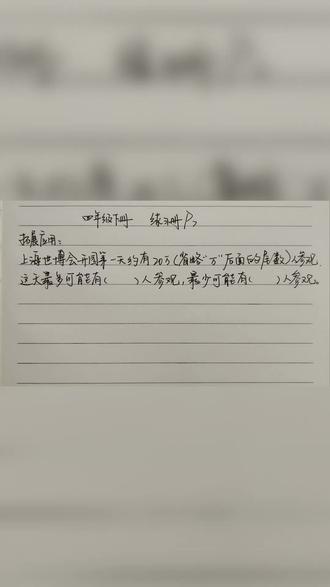 四年级下册 练习册P7
拓展应用：
上海世博会开园第一天约有20万(省略"万"后面的尾数)人参观,
这天最多可能有( )人参观,最少可能有( )人参观。